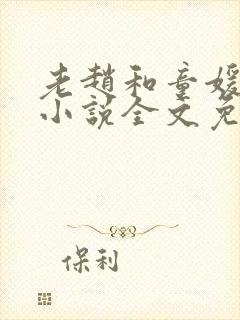 老趙和童媛
小說全文免
保利